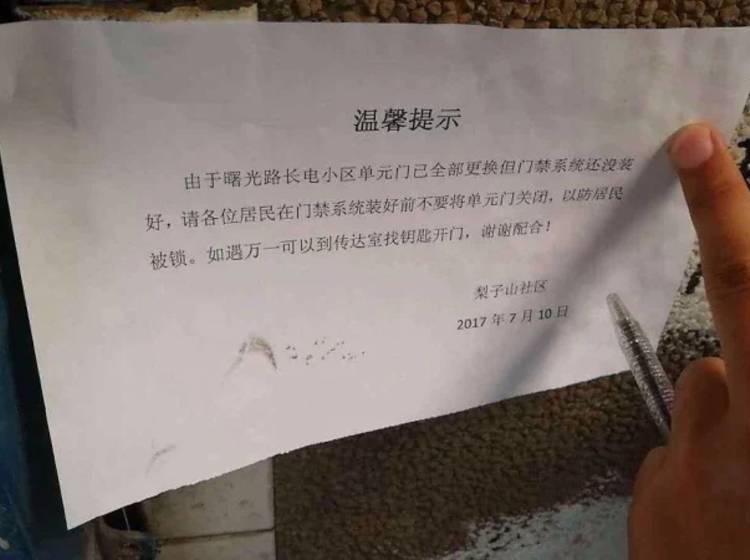 温馨提示
由于曙光路长电小区单元门已全部更换但门禁系统还没装
好，请各位居民在门禁系统装好前不要将单元门关闭，以防居民
被锁。如遇万一可以到传达室找钥匙开门，谢谢配合！
梨子山社区
2017 年 7 月 10 日